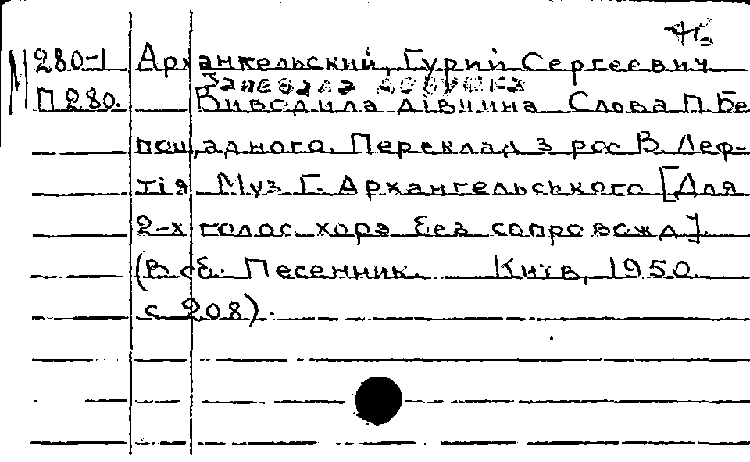 М 280-1 Архангельский, Гурий Сергеевич
Запевала девушка
П280. Виводила дівчина Слова П. Бес-
пощадного. Переклад з рос В. Леф-
тія Муз Г. Архангельського [Для
2-х голос. хора без сопровожд].
(В сб. Песенник. Київ, 1950
с 208).